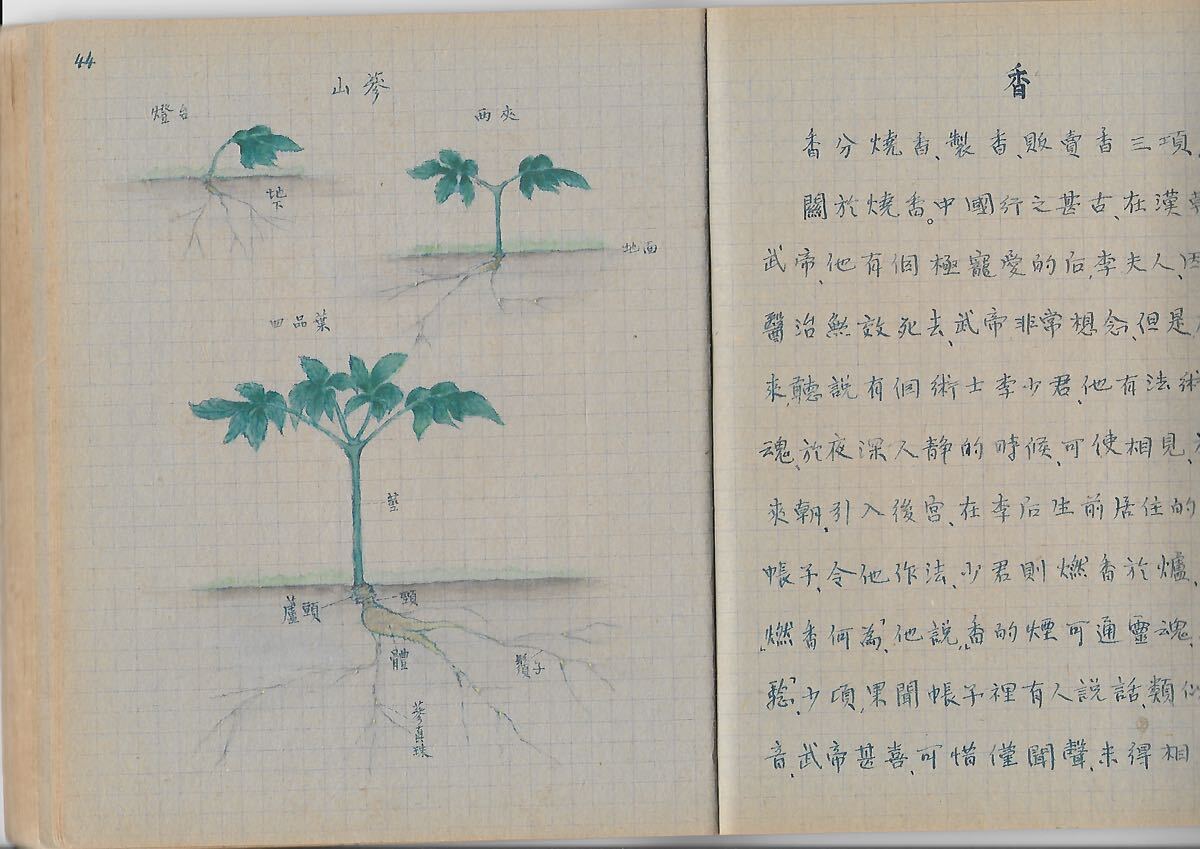 44
山蔘
燈台
地下
兩夾
地面
四品葉
莖
蘆頭
頸
體
鬚子
蔘真珠
香
香分燒香、製香、販賣香三項
關於燒香。中國行之甚古、在漢
武帝、他有個極寵愛的后、李夫人、因
醫治無效死去、武帝非常想念、但是
來、聽説有個術士李少君、他有法術
魂、於夜深人靜的時候、可使相見、
來朝、引入後宮、在李后生前居住的
帳子、令他作法、少君則燃香於爐、
燃香何為、他説、香的煙可通靈魂
驗、少頃、果聞帳子裡有人説話、類似
音、武帝甚喜、可惜僅聞聲、未得相